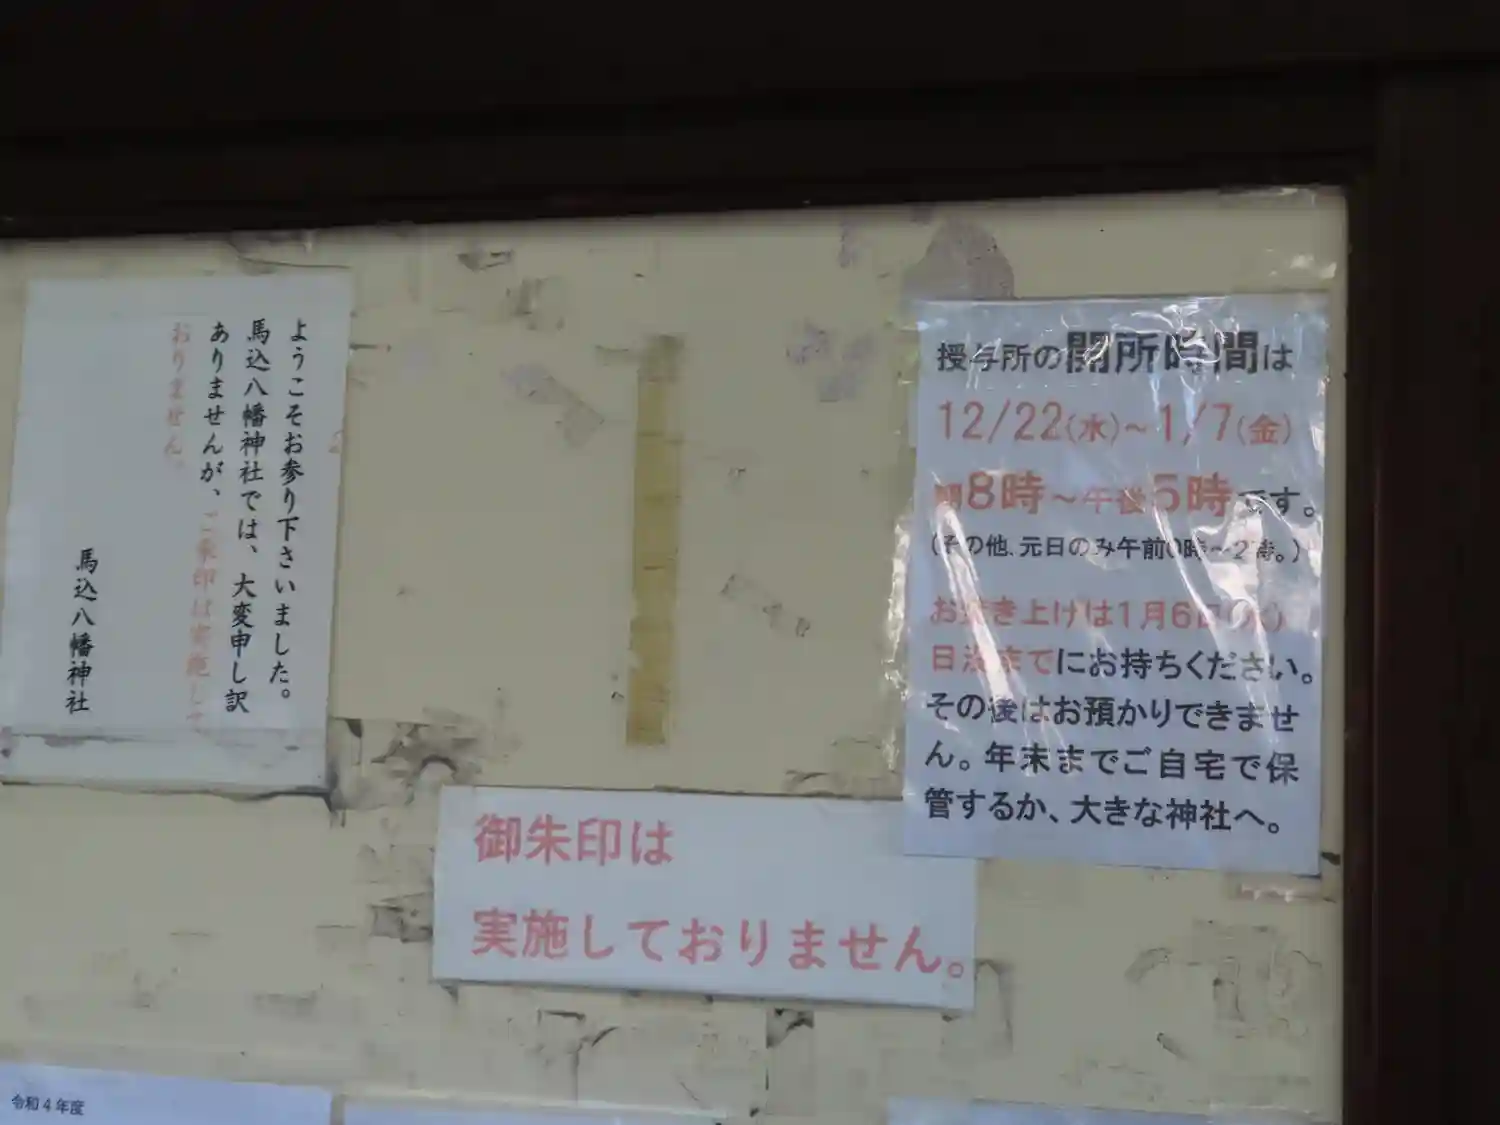 ようこそお参り下さいました。
馬込八幡神社では、大変申し訳
ありませんが、ご朱印は実施して
おりません。
馬込八幡神社
授与所の開所時間は
12/22(水)～1/7(金)
朝8時～午後5時です。
(その他、元日のみ午前0時～2時。)
お焚き上げは1月6日(木)
日没までにお持ちください。
その後はお預かりできませ
ん。年末までご自宅で保
管するか、大きな神社へ。
御朱印は
実施しておりません。
令和4年度